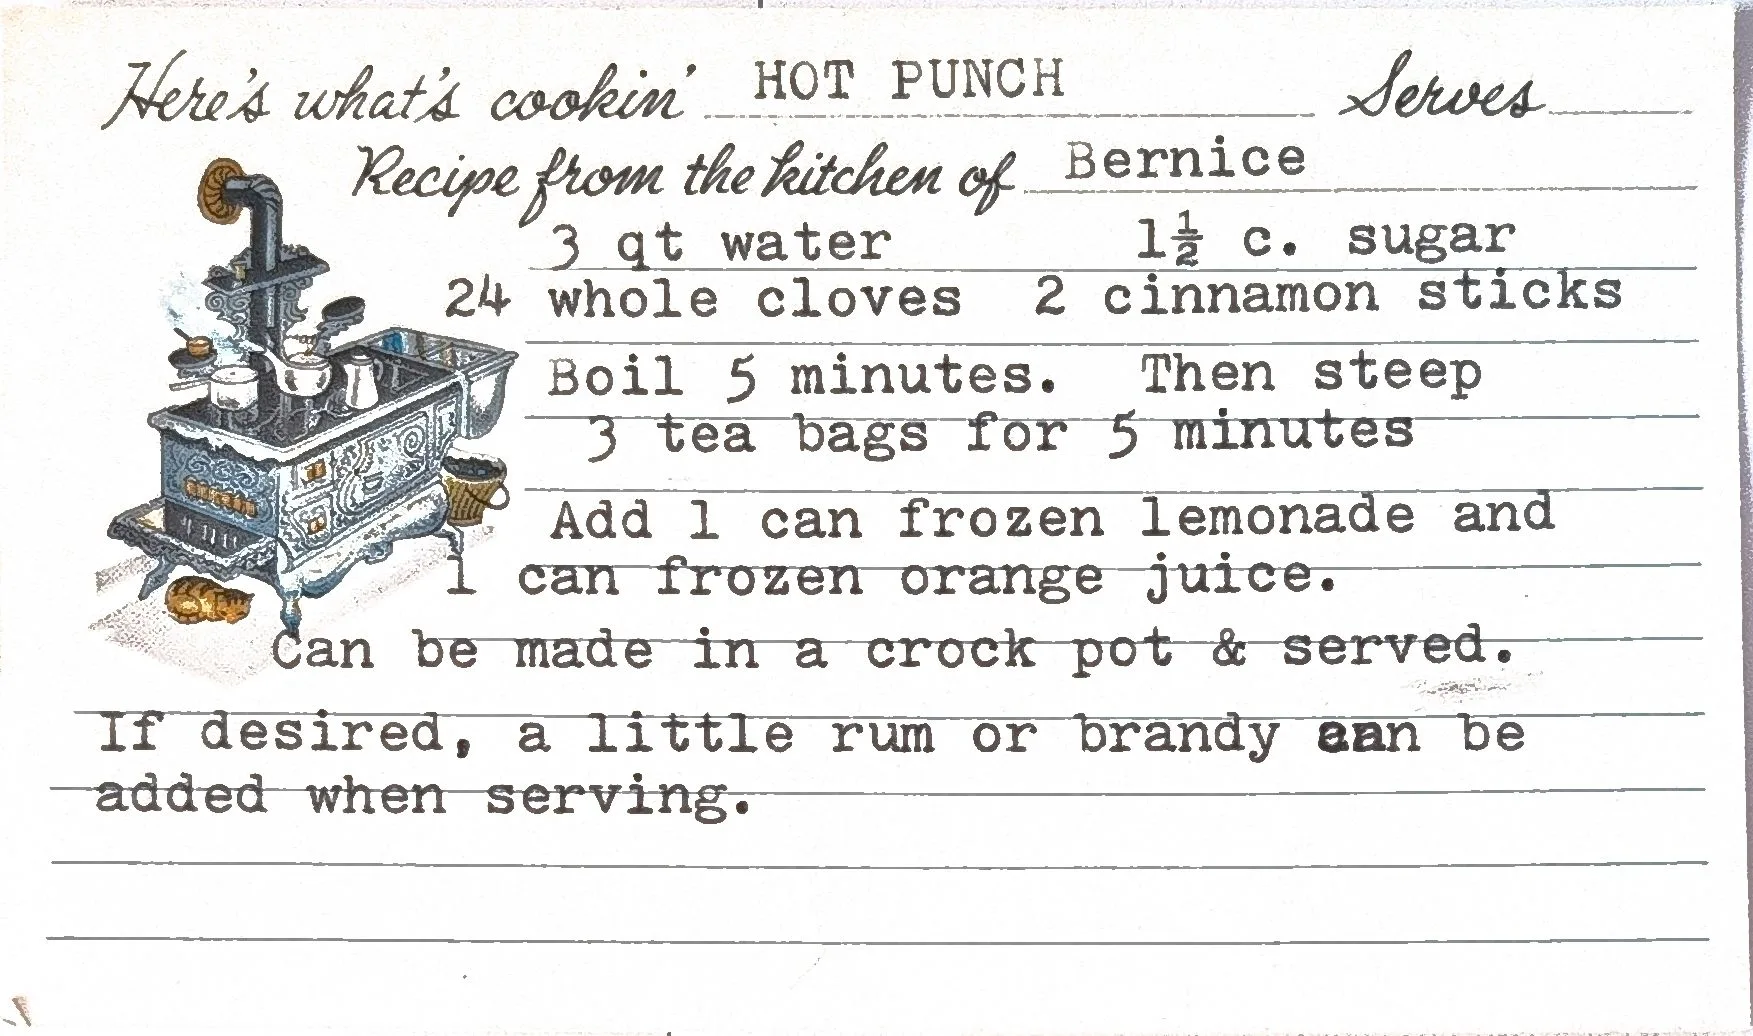 Here's what's cookin' HOT PUNCH Serves
Recipe from the kitchen of Bernice
3 qt water 1½ c. sugar
24 whole cloves 2 cinnamon sticks
Boil 5 minutes. Then steep
3 tea bags for 5 minutes
Add 1 can frozen lemonade and
1 can frozen orange juice.
Can be made in a crock pot & served.
If desired, a little rum or brandy can be
added when serving.